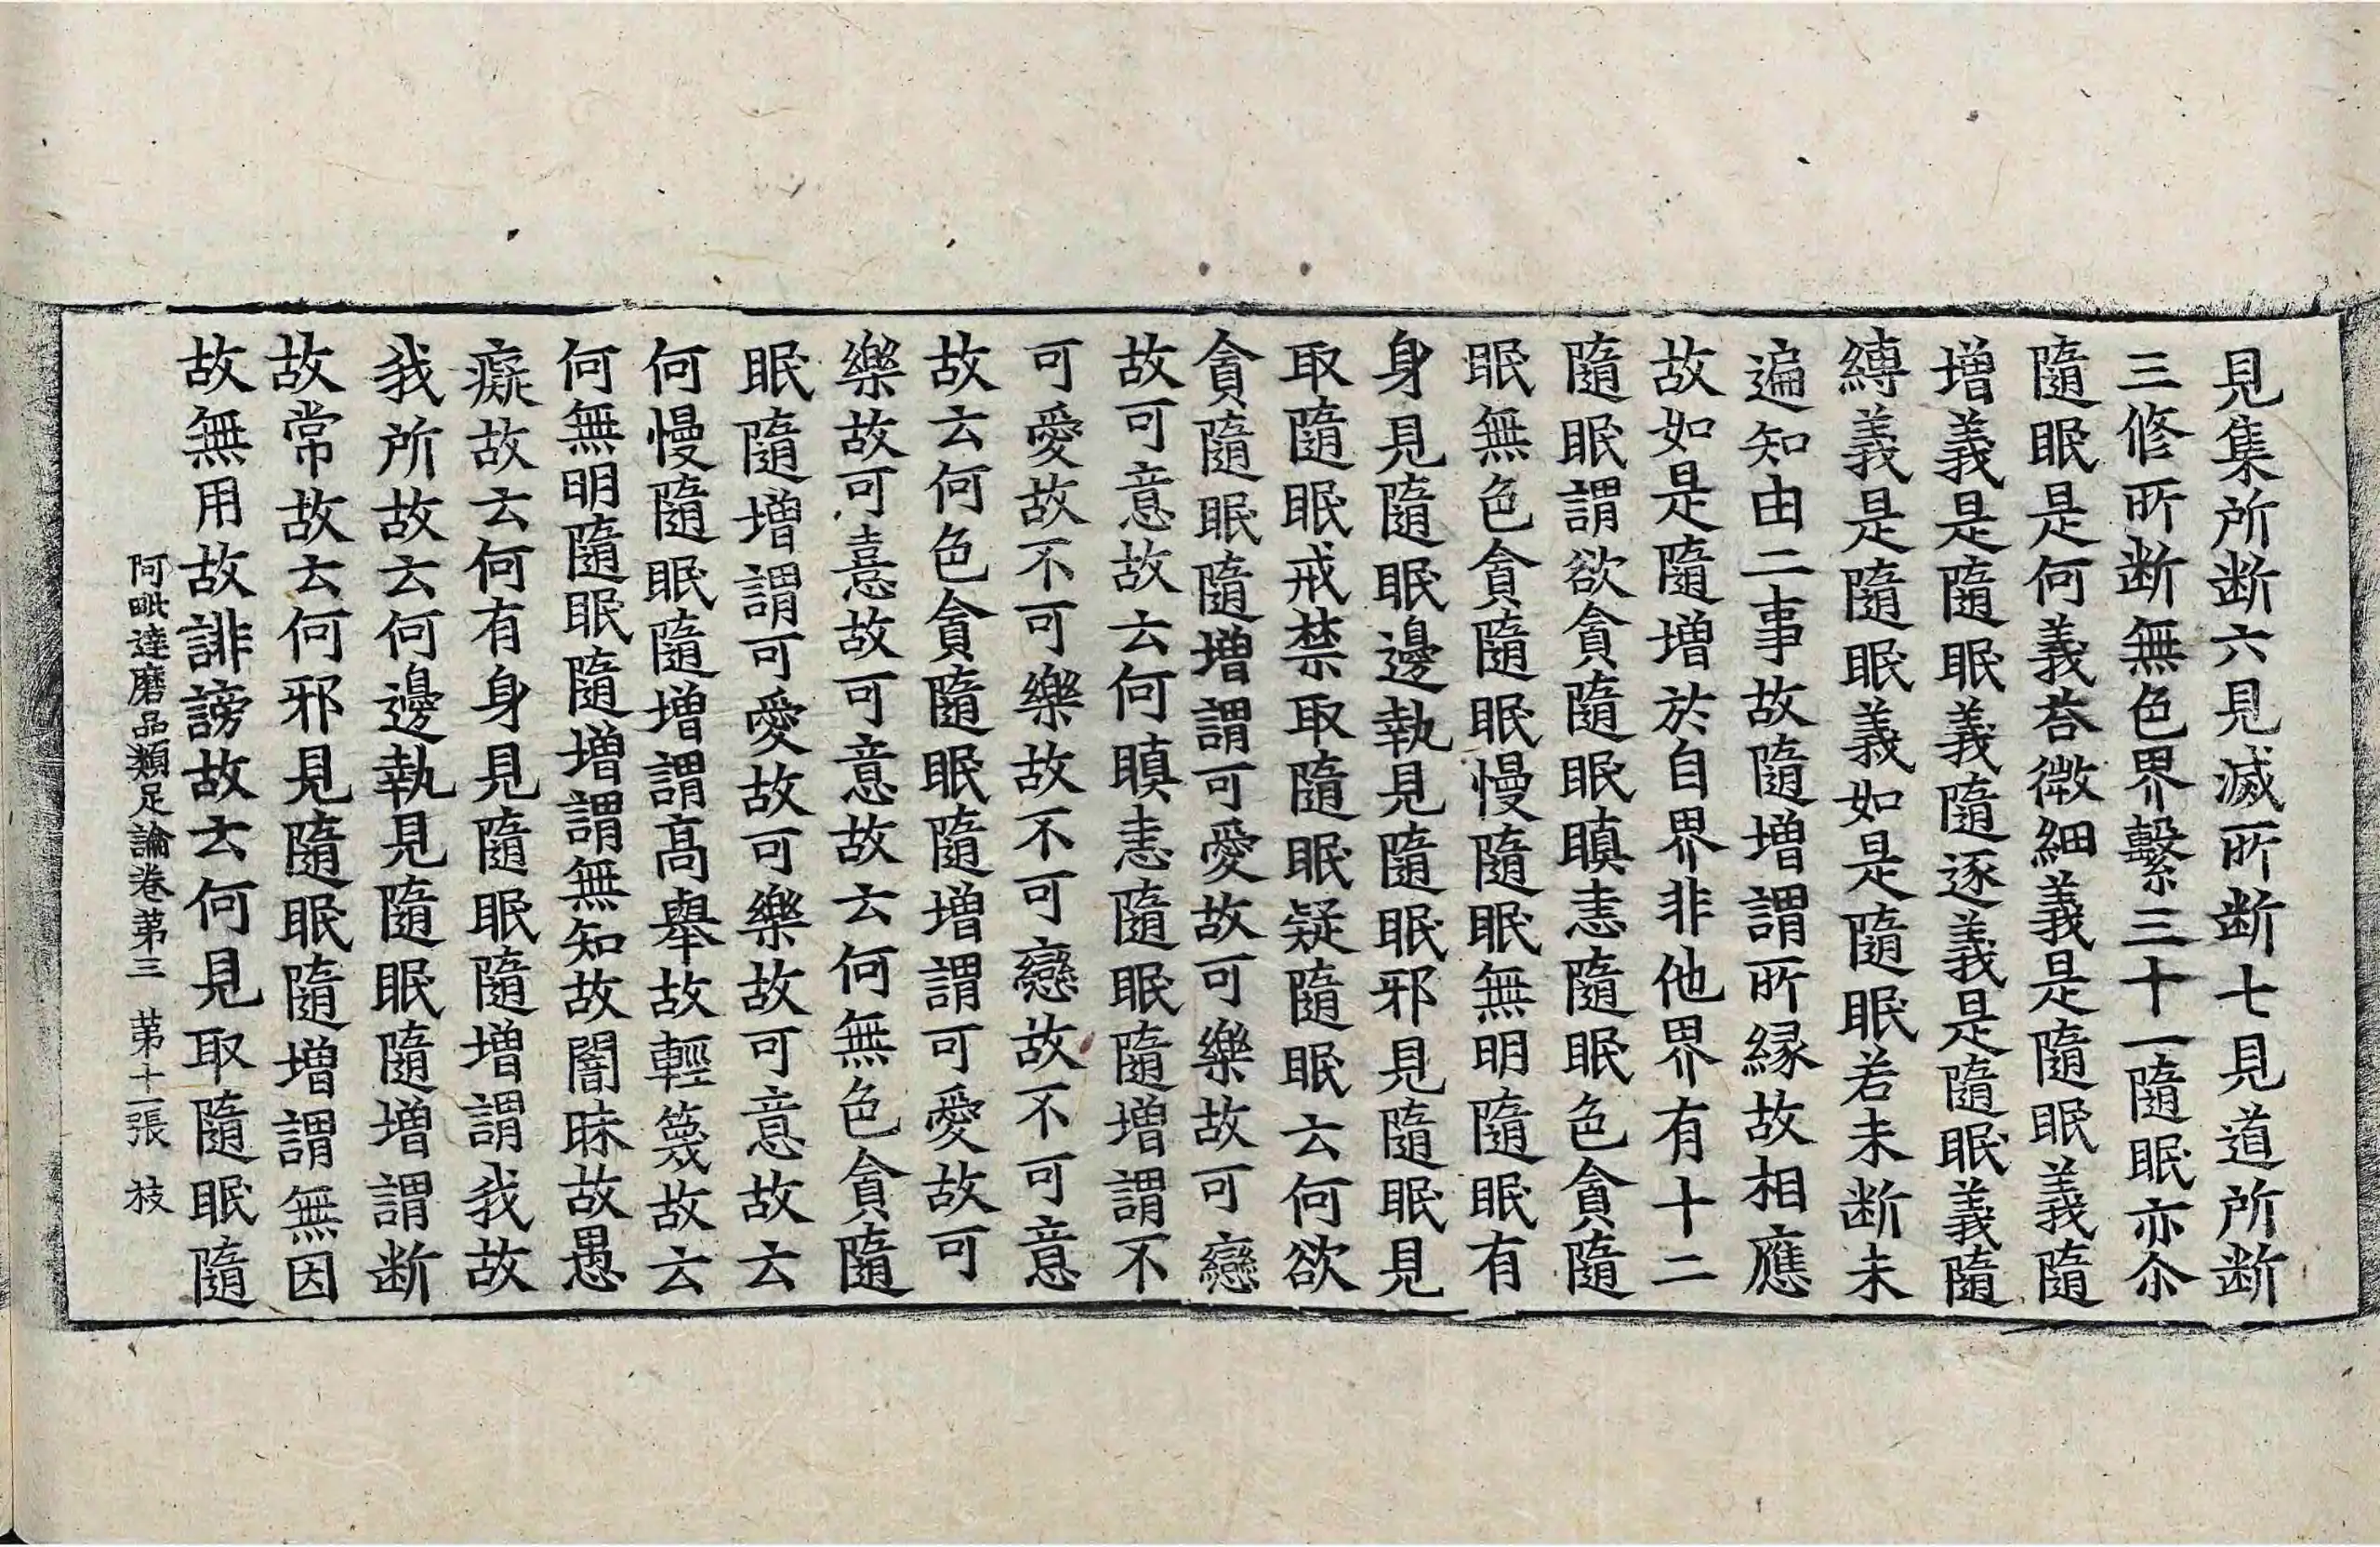 見集所断六見滅所断七見道所断
三修所断無色界繫三十一隨眠亦尒
隨眠是何義荅微細義是隨眠義隨
增義是隨眠義隨逐義是隨眠義隨
縛義是隨眠義如是隨眠若未断未
遍知由二事故隨增謂所緣故相應
故如是隨增於自界非他界有十二
隨眠謂欲貪隨眠瞋恚隨眠色貪隨
眠無色貪隨眠慢隨眠無明隨眠有
身見隨眠邊執見隨眠邪見隨眠見
取隨眠戒禁取隨眠疑隨眠云何欲
貪隨眠隨增謂可愛故可樂故可戀
故可意故云何瞋恚隨眠隨增謂不
可愛故不可樂故不可戀故不可意
故云何色貪隨眠隨增謂可愛故可
樂故可憙故可意故云何無色貪隨
眠隨增謂可愛故可樂故可意故云
何慢隨眠隨增謂髙舉故輕篾故云
何無明隨眠隨增謂無知故闇昧故愚
癡故云何有身見隨眠隨增謂我故
我所故云何邊執見隨眠隨增謂断
故常故云何邪見隨眠隨增謂無因
故無用故誹謗故云何見取隨眠隨
阿毗達磨品類足論卷苐三 苐十一張 枝